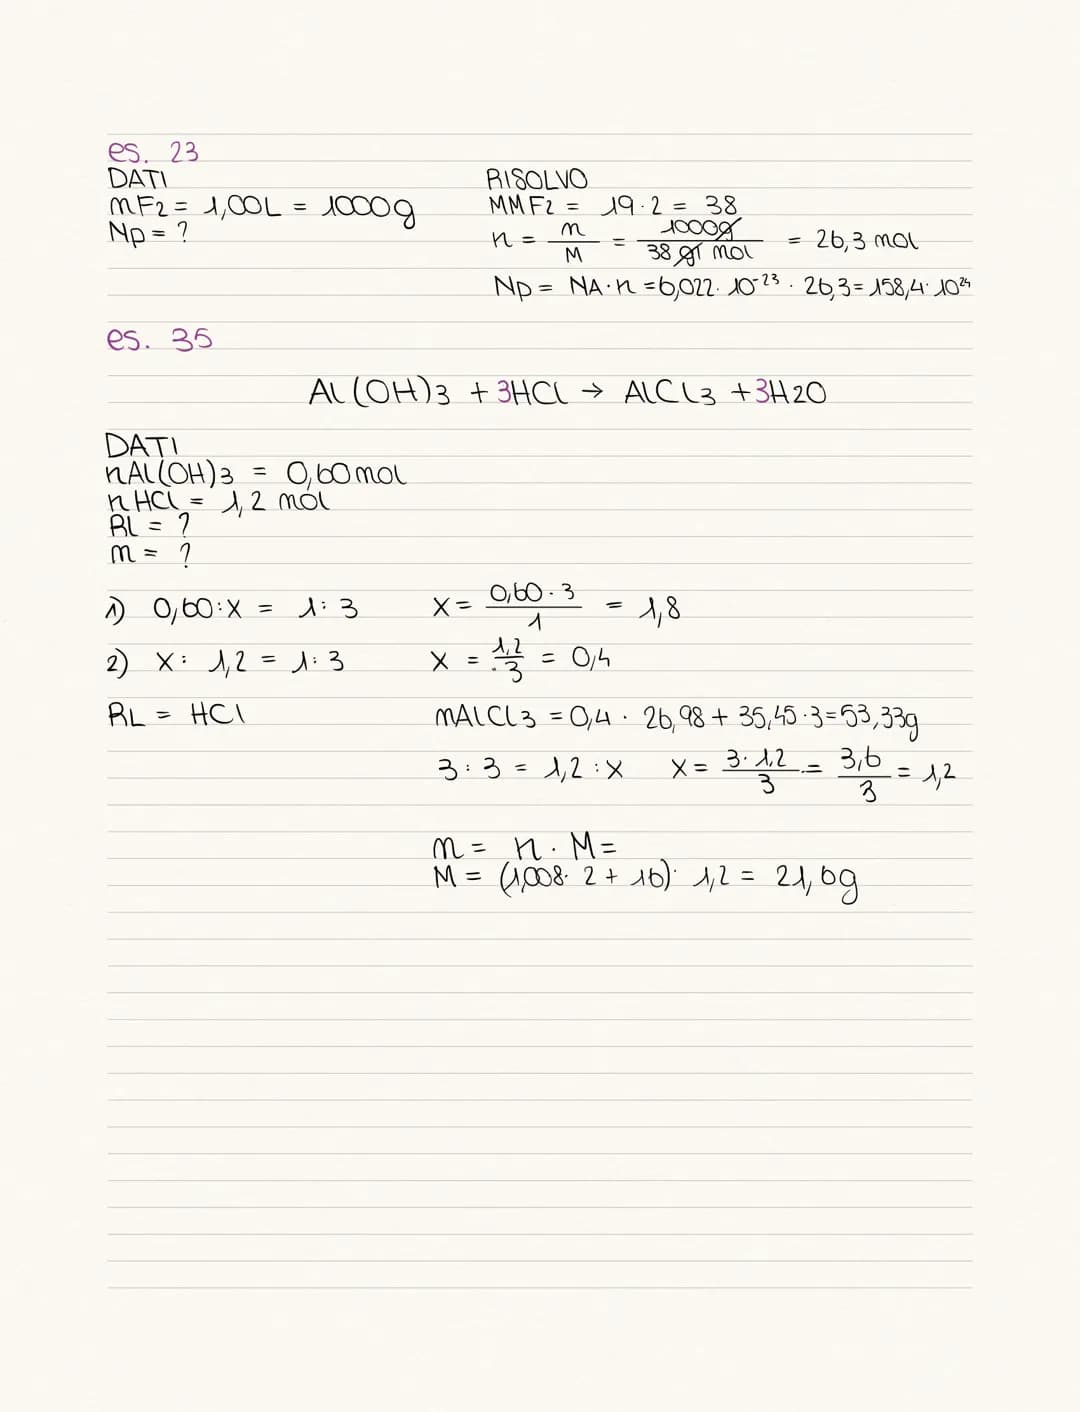 es. 23
DATI
mF2 = 1,00L = 1000g
Np = ?
RISOLVO
MMF2 = 19·2 = 38
n = m/M = 1000g/38 g/mol = 26,3 mol
Np = NA·n = 6,022·10⁻²³ · 26,3 = 158,4·10²⁴
es. 35
Al(OH)3 + 3HCl → AlCl3 + 3H2O
DATI
nAl(OH)3 = 0,60 mol
nHCl = 1,2 mol
RL = ?
m = ?
1) 0,60 : x = 1 : 3 x = 0,60·3/1 = 1,8
2) x : 1,2 = 1 : 3 x = 1,2/3 = 0,4
RL = HCl mAlCl3 = 0,4 · 26,98 + 35,45·3 = 53,33g
3 : 3 = 1,2 : x x = 3·1,2/3 = 3,6/3 = 1,2
m = n · M =
M = (1,008·2 + 16)· 1,2 = 21,6g